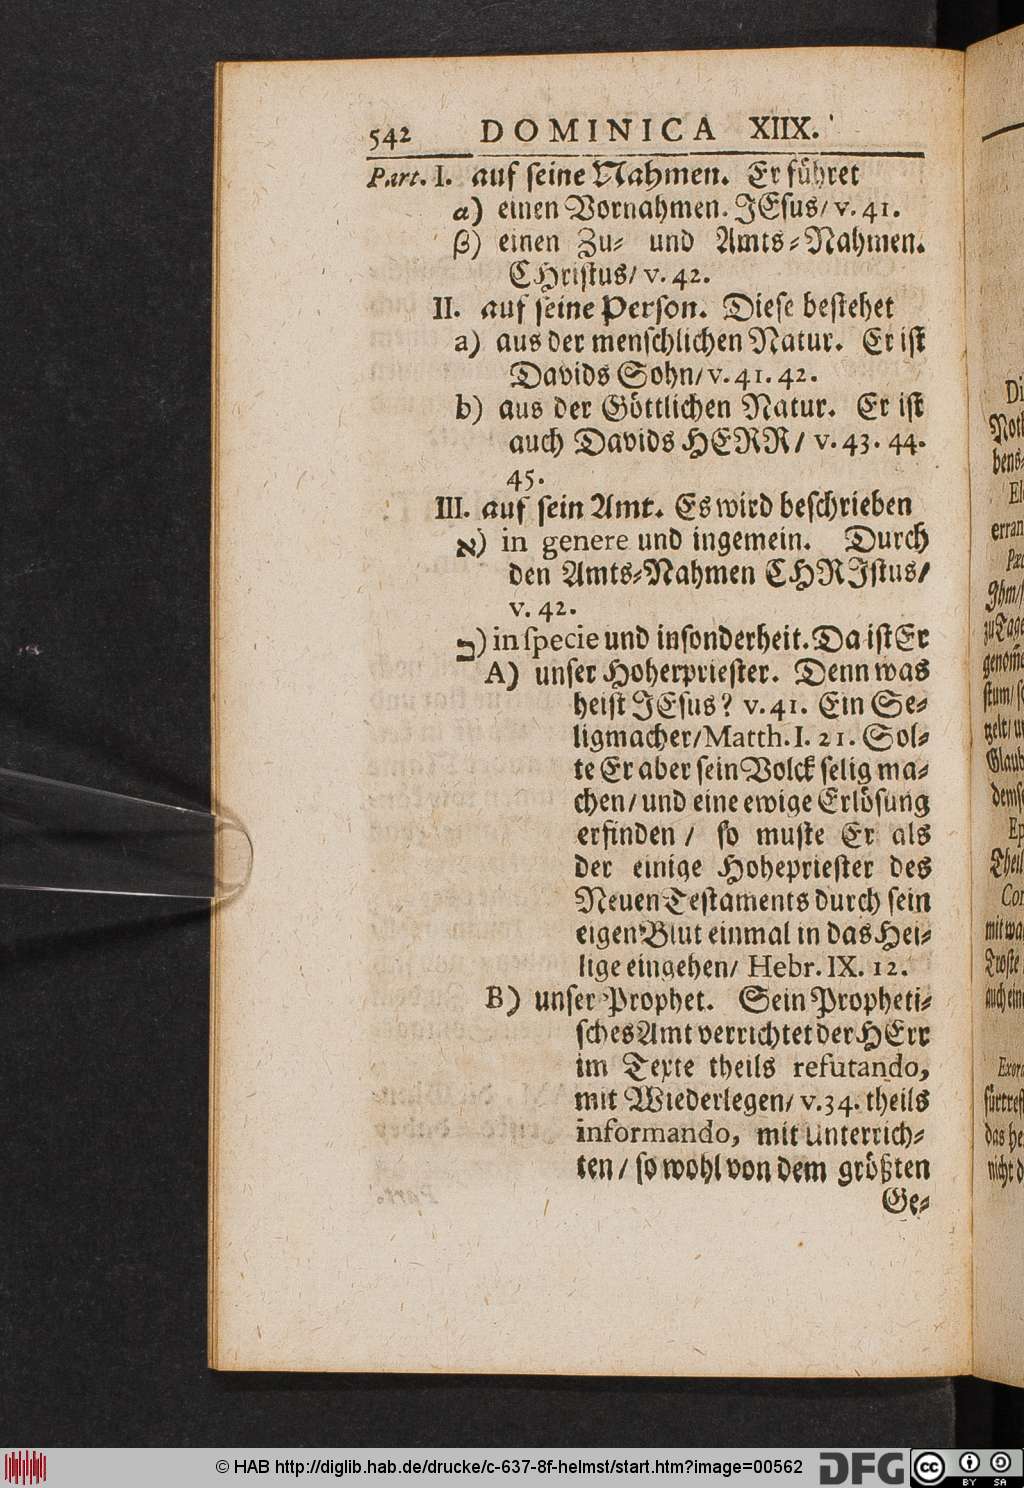 542 DOMINICA XIIX.
Part. I. auf seine Nahmen. Er führet
α) einen Vornahmen. JEsus/ v. 41.
β) einen Zu- und Amts-Nahmen.
CHristus/ v. 42.
II. auf seine Person. Diese bestehet
a) aus der menschlichen Natur. Er ist
Davids Sohn/ v. 41. 42.
b) aus der Göttlichen Natur. Er ist
auch Davids HERR/ v. 43. 44.
45.
III. auf sein Amt. Es wird beschrieben
א) in genere und ingemein. Durch
den Amts-Nahmen CHRJstus/
v. 42.
ב) in specie und insonderheit. Da ist Er
A) unser Hoherpriester. Denn was
heist JEsus? v. 41. Ein Se-
ligmacher/ Matth. I. 21. Sol-
te Er aber sein Volck selig ma-
chen/ und eine ewige Erlösung
erfinden / so muste Er als
der einige Hohepriester des
Neuen Testaments durch sein
eigen Blut einmal in das Hei-
lige eingehen/ Hebr. IX. 12.
B) unser Prophet. Sein Propheti-
sches Amt verrichtet der HErr
im Texte theils refutando,
mit Wiederlegen/ v. 34. theils
informando, mit Unterrich-
ten / so wohl von dem größten
Ge-
© HAB http://diglib.hab.de/drucke/c-637-8f-helmst/start.htm?image=00562
DFG
cc BY SA